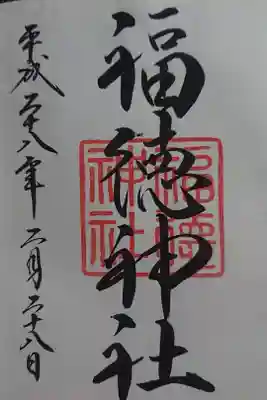 福徳神社
福徳
神社
平成二十八年 二月二十八日